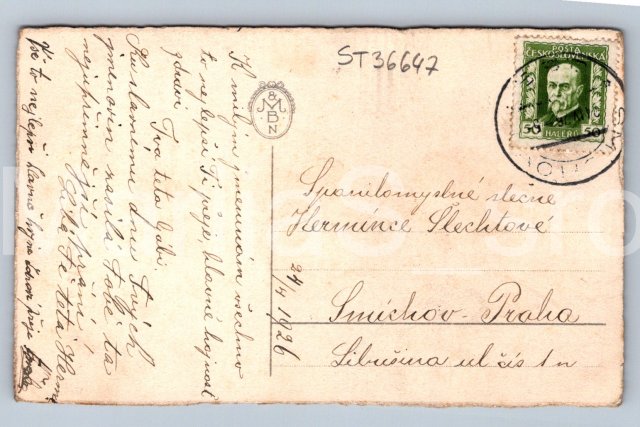 ST36647
POŠTA
ČESKOSLOVENSKÁ
50 HALÉŘŮ 50
M&B
N
K milým jmeninám všechno
to nejlepší Ti přeje, hlavně hojnost
zdraví
Tvá teta Gábi.
Ku slavnému dnu Tvých
jmenin zasílá Tobě ta
nejupřímnější přání
Líbá Tě teta Herma
Vše to nejlepší hlavně hojně zdraví přeje
24/4 1926
Spanilomyslné slečně
Hermínce Šlechtové
Smíchov-Praha
Libušina ul čís 1 n